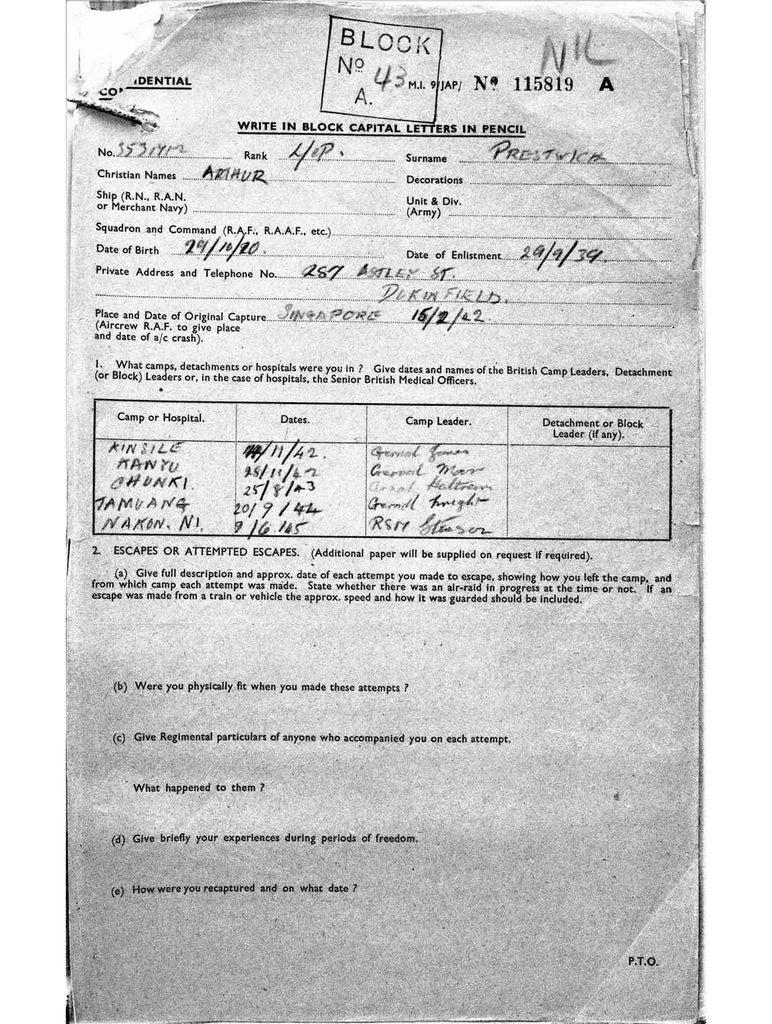 BLOCK
No 43
A.
NIL
IDENTIAL
CO
M.I. 9/JAP/ No 115819 A
WRITE IN BLOCK CAPITAL LETTERS IN PENCIL
No. Rank Surname PRESTWICH
Christian Names ARTHUR Decorations
Ship (R.N., R.A.N. or Merchant Navy)
Unit & Div. (Army)
Squadron and Command (R.A.F., R.A.A.F., etc.)
Date of Birth 29/10/20. Date of Enlistment 29/9/39.
Private Address and Telephone No. 287 ASTLEY ST.
DUKINFIELD.
Place and Date of Original Capture SINGAPORE 15/2/42
(Aircrew R.A.F. to give place
and date of a/c crash).
1. What camps, detachments or hospitals were you in ? Give dates and names of the British Camp Leaders, Detachment
(or Block) Leaders or, in the case of hospitals, the Senior British Medical Officers.
Camp or Hospital. Dates. Camp Leader. Detachment or Block
Leader (if any).
KINSILE /11/42.
KANYU 28/11/42
CHUNKI. 25/8/43
TAMUANG 20/9/44 Knight
NAKON. NI. 9/6/45 RSM
2. ESCAPES OR ATTEMPTED ESCAPES. (Additional paper will be supplied on request if required).
(a) Give full description and approx. date of each attempt you made to escape, showing how you left the camp, and
from which camp each attempt was made. State whether there was an air-raid in progress at the time or not. If an
escape was made from a train or vehicle the approx. speed and how it was guarded should be included.
(b) Were you physically fit when you made these attempts ?
(c) Give Regimental particulars of anyone who accompanied you on each attempt.
What happened to them ?
(d) Give briefly your experiences during periods of freedom.
(e) How were you recaptured and on what date ?
P.T.O.